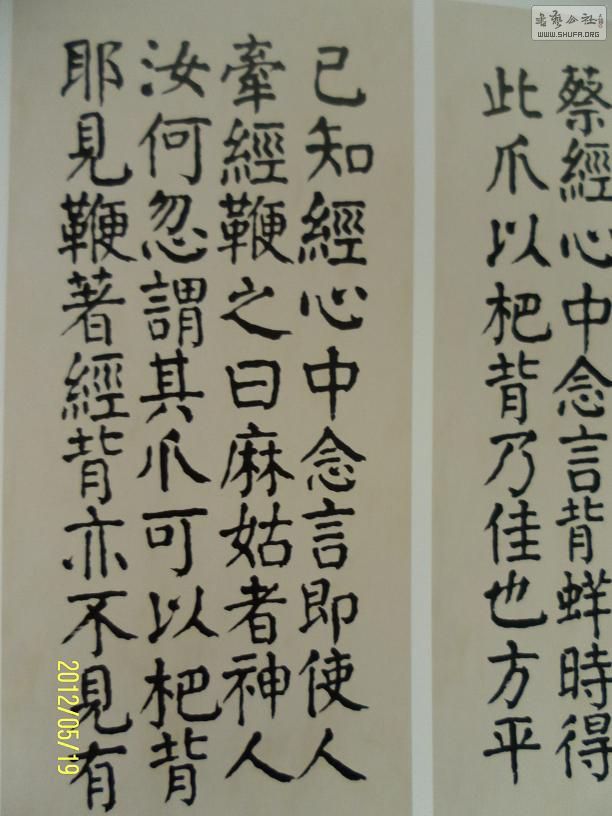 蔡經心中念言背蛘時得
此爪以杷背乃佳也方平
已知經心中念言即使人
牽經鞭之曰麻姑者神人
汝何忽謂其爪可以杷背
耶見鞭著經背亦不見有
书艺公社
WWW.SHUFA.ORG
2012/05/19